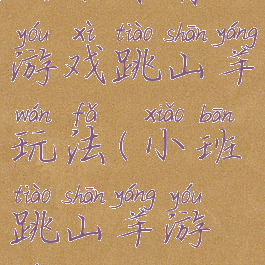 yóu xì tiào shān yáng
游戏跳山羊
wán fǎ xiǎo bān
玩法(小班
tiào shān yáng yóu
跳山羊游